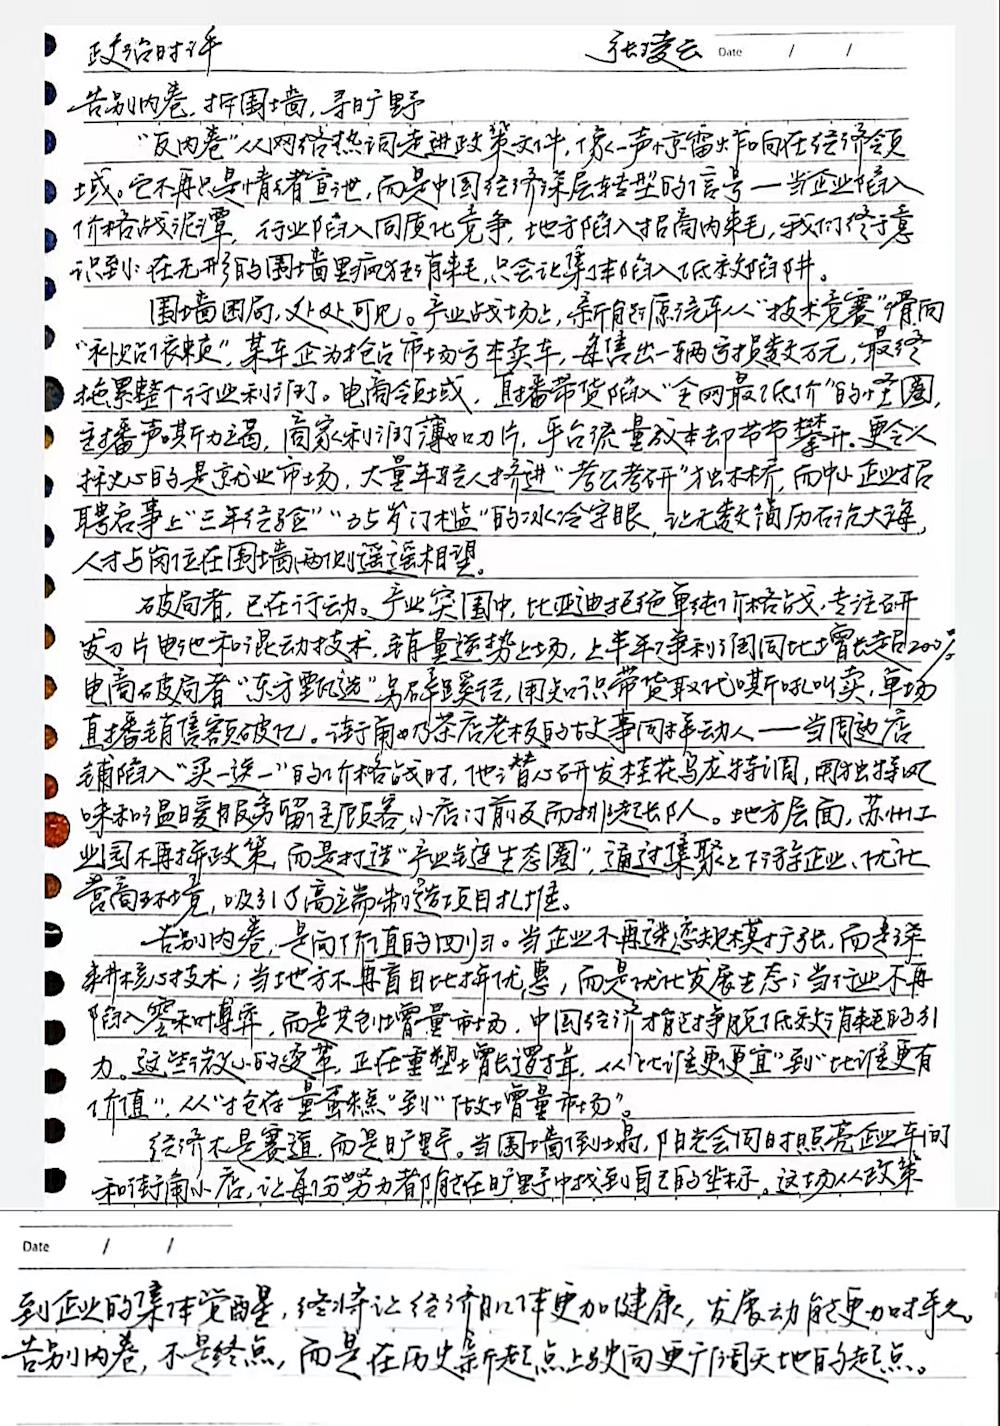 政治时评 张凌云 Date / /
告别内卷，拆围墙，寻旷野
“反内卷”从网络热词走进政策文件，像一声惊雷炸响在经济领
域。它不再只是情绪宣泄，而是中国经济深层转型的信号—当企业陷入
价格战泥潭，行业陷入同质化竞争，地方陷入招商内耗，我们终于意
识到：在无形的围墙里疯狂消耗，只会让集体陷入低效陷阱。
围墙困局，处处可见。产业战场上，新能源汽车从“技术竞赛”滑向
“补贴依赖”，某车企为抢占市场亏本卖车，每售出一辆亏损数万元，最终
拖累整个行业利润。电商领域，直播带货陷入“全网最低价”的怪圈，
主播声嘶力竭，商家利润薄如刀片，平台流量成本却节节攀升。更令人
揪心的是就业市场，大量年轻人挤进“考公考研”独木桥，而中小企业招
聘启事上“三年经验”“35岁门槛”的冰冷字眼，让无数简历石沉大海，
人才与岗位在围墙两侧遥遥相望。
破局者，已在行动。产业突围中，比亚迪拒绝单纯价格战，专注研
发刀片电池和混动技术，销量逆势上扬，上半年净利润同比增长超200%
电商破局者“东方甄选”另辟蹊径，用知识带货取代嘶吼叫卖，单场
直播销售额破亿。街角奶茶店老板的故事同样动人——当周边店
铺陷入“买一送一”的价格战时，他潜心研发桂花乌龙特调，用独特风
味和温暖服务留住顾客，小店门前反而排起长队。地方层面，苏州工
业园不再拼政策，而是打造“产业链生态圈”，通过集聚上下游企业、优化
营商环境，吸引了高端制造项目扎堆。
告别内卷，是向价值的回归。当企业不再迷恋规模扩张，而是深
耕核心技术；当地方不再盲目比拼优惠，而是优化发展生态；当行业不再
陷入零和博弈，而是共创增量市场，中国经济才能挣脱低效消耗的引
力。这些微小的变革，正在重塑增长逻辑，从“比谁更便宜”到“比谁更有
价值”，从“抢存量蛋糕”到“做增量市场”。
经济不是赛道，而是旷野。当围墙倒塌，阳光会同时照亮企业车间
和街角小店，让每份努力者都能在旷野中找到自己的坐标。这场从政策
Date / /
到企业的集体觉醒，终将让经济肌体更加健康，发展动能更加持久。
告别内卷，不是终点，而是在历史新起点上驶向更广阔天地的起点。